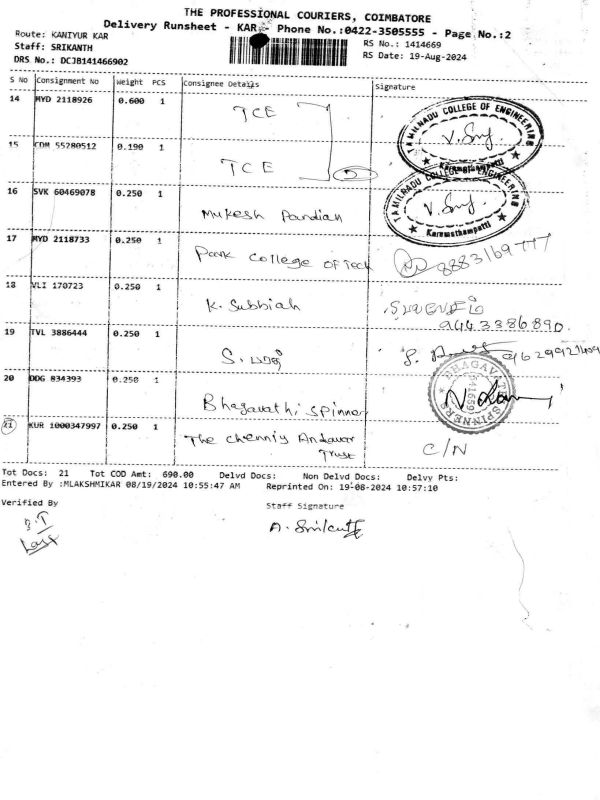 THE PROFESSIONAL COURIERS, COIMBATORE
Delivery Runsheet - KAR - Phone No.:0422-3505555 - Page No.:2
Route: KANIYUR KAR
RS No.: 1414669
Staff: SRIKANTH
RS Date: 19-Aug-2024
DRS No.: DCJB141466902
S No Consignment No Weight PCS Consignee Details Signature
14 MYD 2118926 0.600 1 TCE
TAMILNADU COLLEGE OF ENGINEERING
Karumathampatti
15 CDM 55280512 0.190 1 TCE
TAMILNADU COLLEGE OF ENGINEERING
Karumathampatti
16 SVK 60469078 0.250 1 Mukesh Pandian
17 MYD 2118733 0.250 1 Park College of Tech 8883169777
18 VLI 170723 0.250 1 K. Subbiah
9443386890.
19 TVL 3886444 0.250 1 S.
9629921409
20 DDG 834393 0.250 1 Bhagavathi spinner
BHAGAVATHI SPINNERS 641659
21 KUR 1000347997 0.250 1 The Chenniy Andavar Trust C/N
Tot Docs: 21 Tot COD Amt: 690.00 Delvd Docs: Non Delvd Docs: Delvy Pts:
Entered By :MLAKSHMIKAR 08/19/2024 10:55:47 AM Reprinted On: 19-08-2024 10:57:10
Verified By
Staff Signature